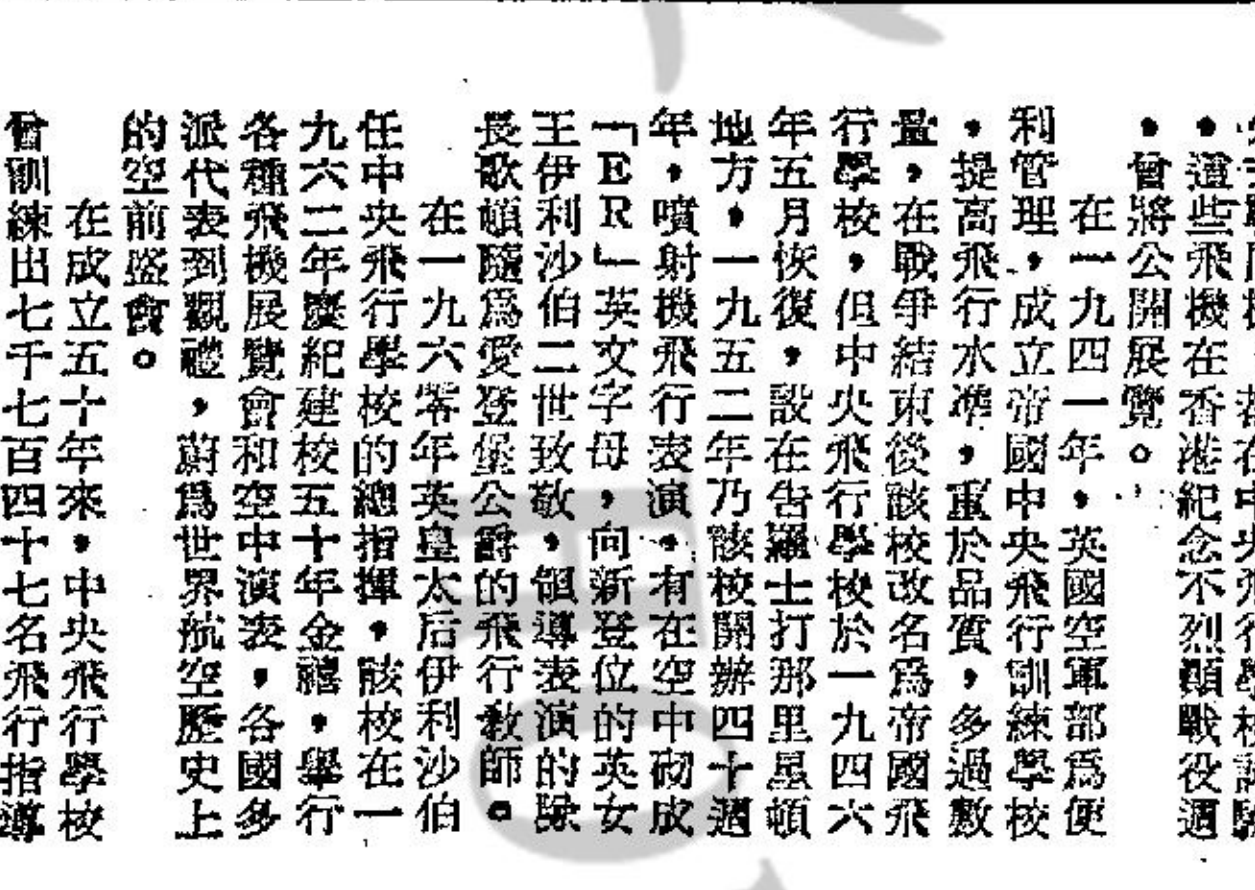 。這些飛機在香港紀念不烈顚戰役週
，曾將公開展覽。
在一九四一年，英國空軍部爲便
利管理，成立帝國中央飛行訓練學校
，提高飛行水準，重於品質，多過數
量，在戰爭結束後該校改名爲帝國飛
行學校，但中央飛行學校於一九四六
年五月恢復，設在告羅士打那里星頓
地方，一九五二年乃該校開辦四十週
年，噴射機飛行表演，有在空中砌成
「ER」英文字母，向新登位的英女
王伊利沙伯二世致敬，領導表演的隊
長歌頓隨爲愛登堡公爵的飛行教師。
在一九六零年英皇太后伊利沙伯
任中央飛行學校的總指揮，該校在一
九六二年慶紀建校五十年金禧，舉行
各種飛機展覽會和空中演表，各國多
派代表到觀禮，蔚爲世界航空歷史上
的空前盛會。
在成立五十年來，中央飛行學校
曾訓練出七千七百四十七名飛行指導